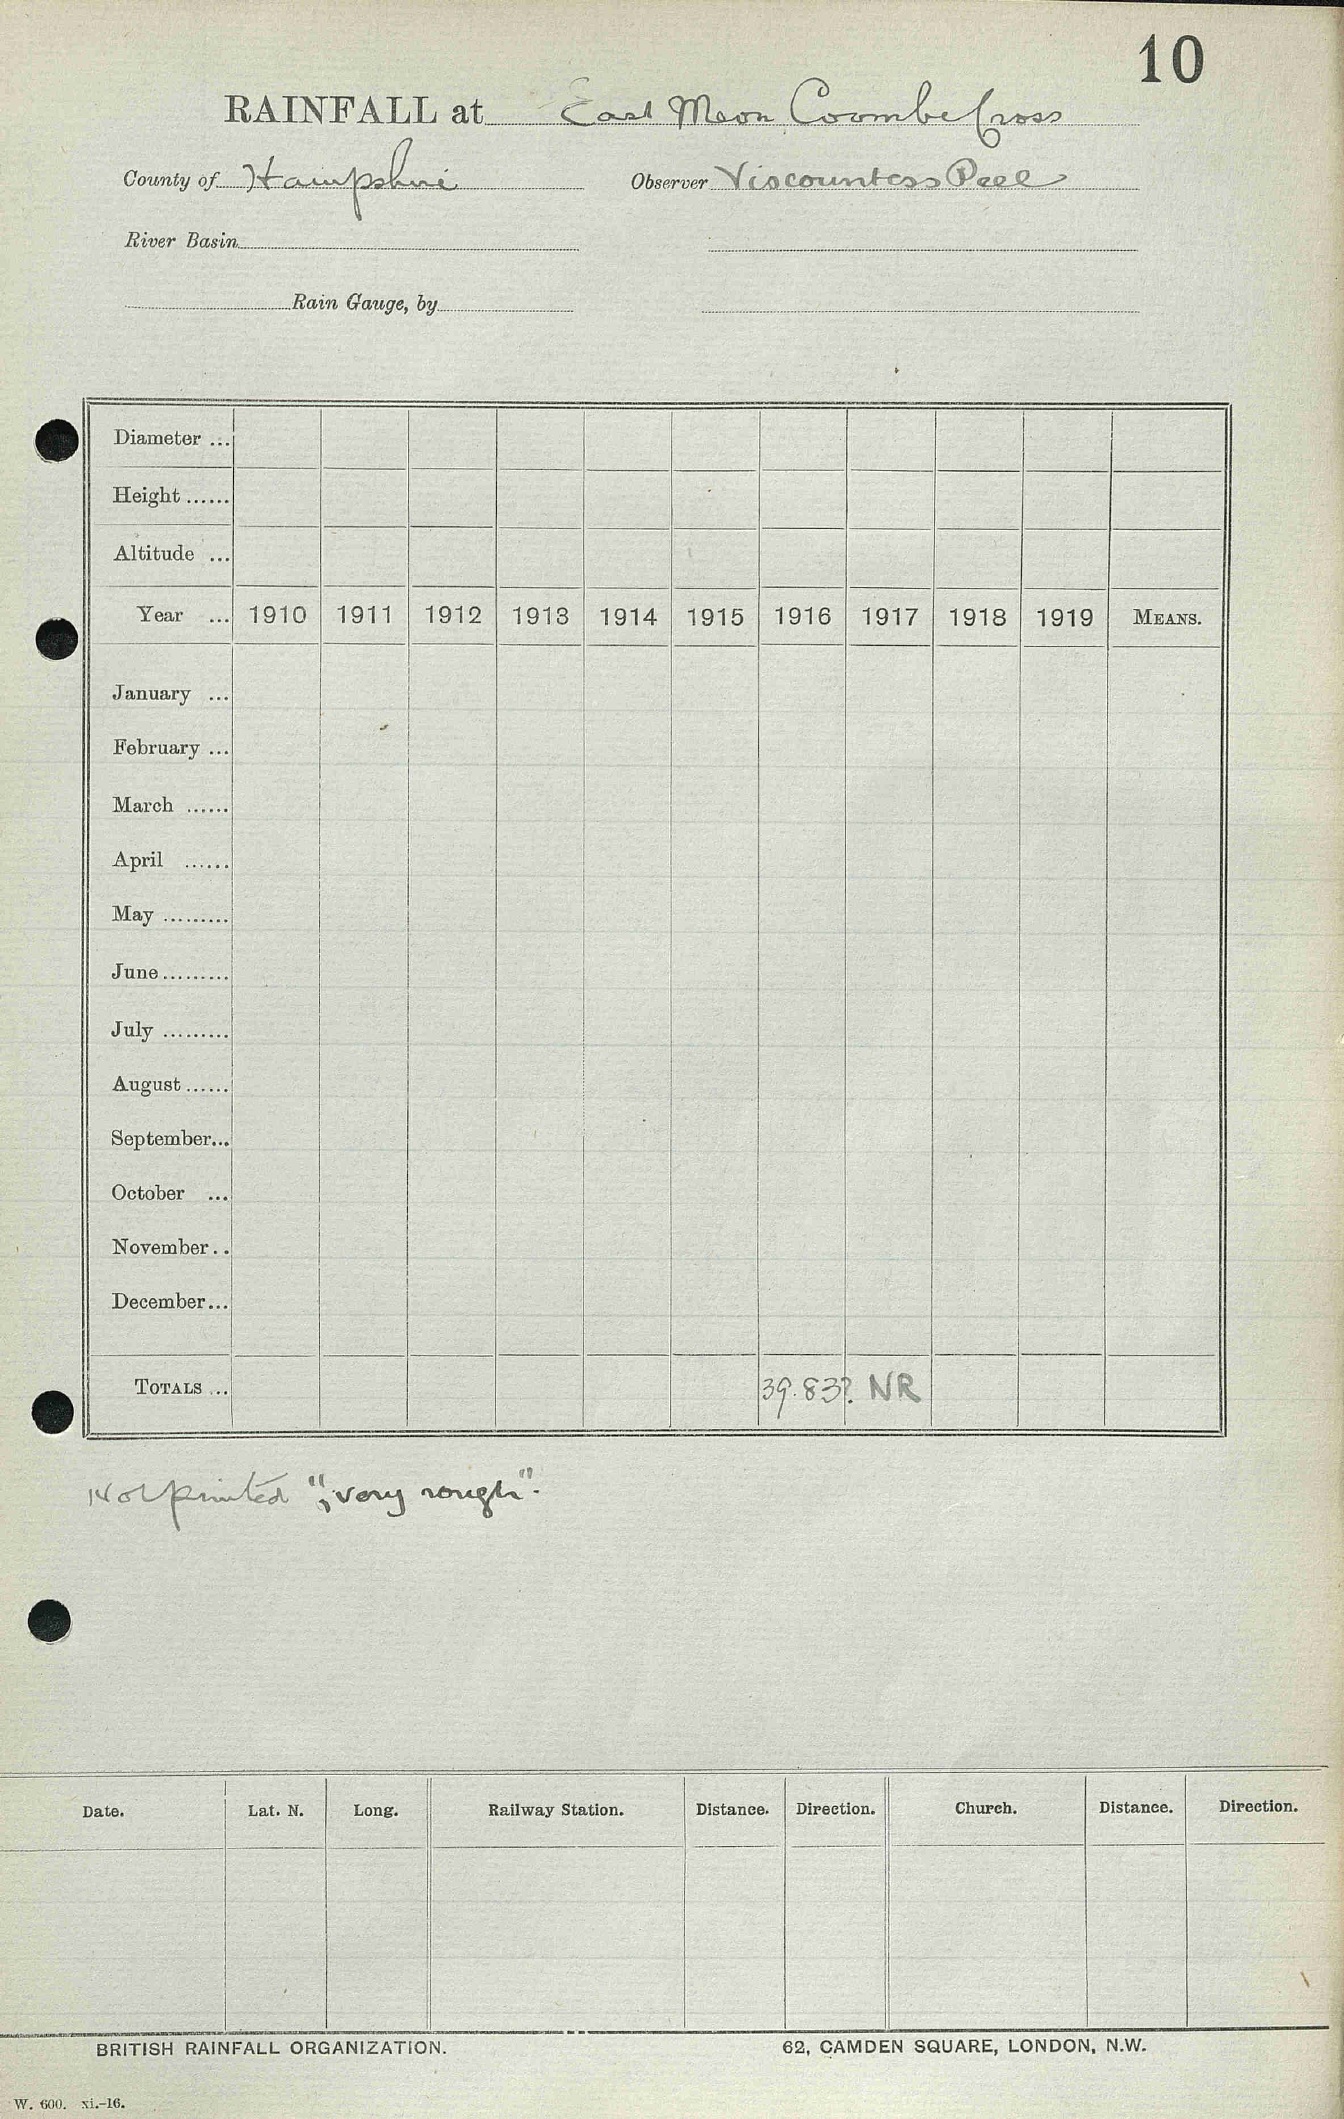 10
RAINFALL at East Meon Coombe Cross
County of Hampshire Observer Viscountess Peel
River Basin
Rain Gauge, by
Diameter ...
Height ......
Altitude ...
Year ... 1910 1911 1912 1913 1914 1915 1916 1917 1918 1919 MEANS.
January ...
February ...
March ......
April ......
May .........
June .........
July .........
August ......
September...
October ...
November..
December...
TOTALS ... 39.83?. NR
Not printed ", very rough".
Date. Lat. N. Long. Railway Station. Distance. Direction. Church. Distance. Direction.
BRITISH RAINFALL ORGANIZATION. 62, CAMDEN SQUARE, LONDON, N.W.
W. 600. xi.-16.